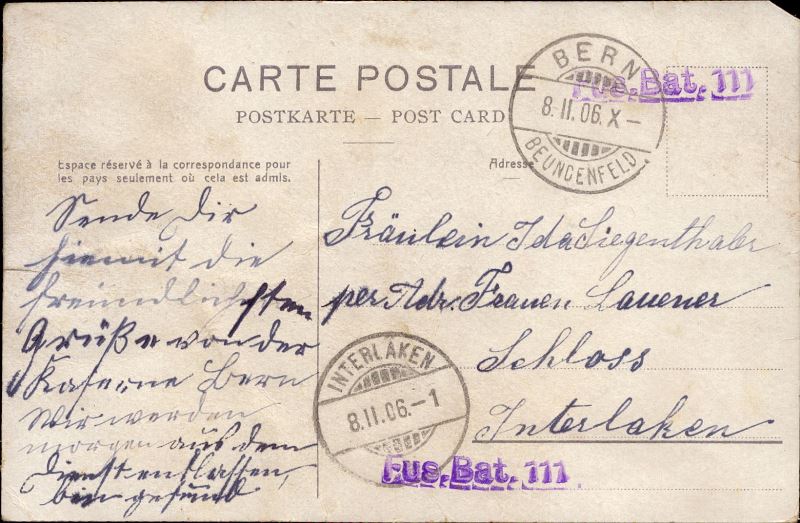 CARTE POSTALE
POSTKARTE — POST CARD
Espace réservé à la correspondance pour
les pays seulement où cela est admis.
Adresse
BERN
8.II.06.X–
BEUNDENFELD
Fus.Bat.111
Sende Dir
hiemit die
freundlichsten
Grüße von der
Kaserne Bern
Wir werden
morgen aus dem
Dienst entlassen,
bin gesund
Fräulein Ida Siegenthaler
per Adr. Frauen Lauener
Schloss
Interlaken
INTERLAKEN
8.II.06.–1
Fus.Bat.111